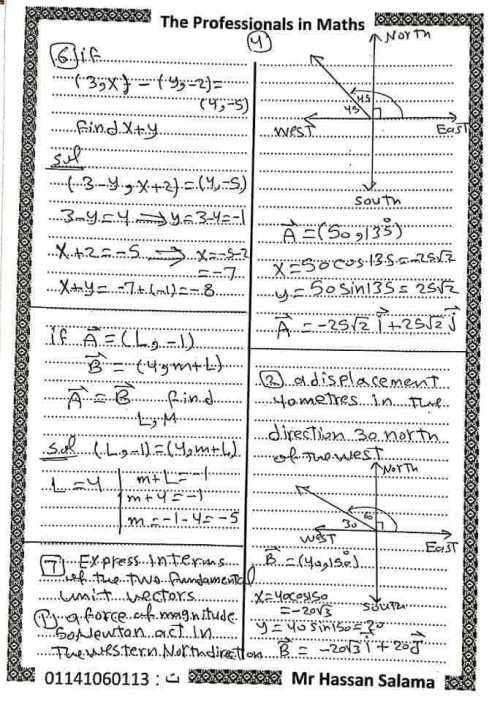 The Professionals in Maths
4
6 if
(3,X) - (y,-2)=
(4,-5)
find X+y
sol
(3-y, X+2)=(4,-5)
3-y=4 ⟹ y=3-4=-1
X+2=-5 ⟹ X=-5-2
=-7
X+y= -7+(-1)=-8
if A⃗=(L,-1)
B⃗ = (4,m+L)
A⃗ = B⃗ find
L,M
sol (L,-1)=(4,m+L)
L=4
m+L=-1
m+4=-1
m=-1-4=-5
7 Express interms
of the two fundamental
unit vectors
1) a force of magnitude
50 Newton act in
The western North direction
North
45
45
West
East
South
A⃗=(50,135°)
X=50cos135=-25√2
y=50sin135=25√2
A⃗=-25√2 i⃗+25√2 j⃗
2 a displacement
40metres in The
direction 30 north
of The west
North
60
30
West
East
B⃗=(40,150°)
South
X=40cos150
=-20√3
y=40sin150=20
B⃗ = -20√3 i⃗+20 j⃗
01141060113 : ت
Mr Hassan Salama